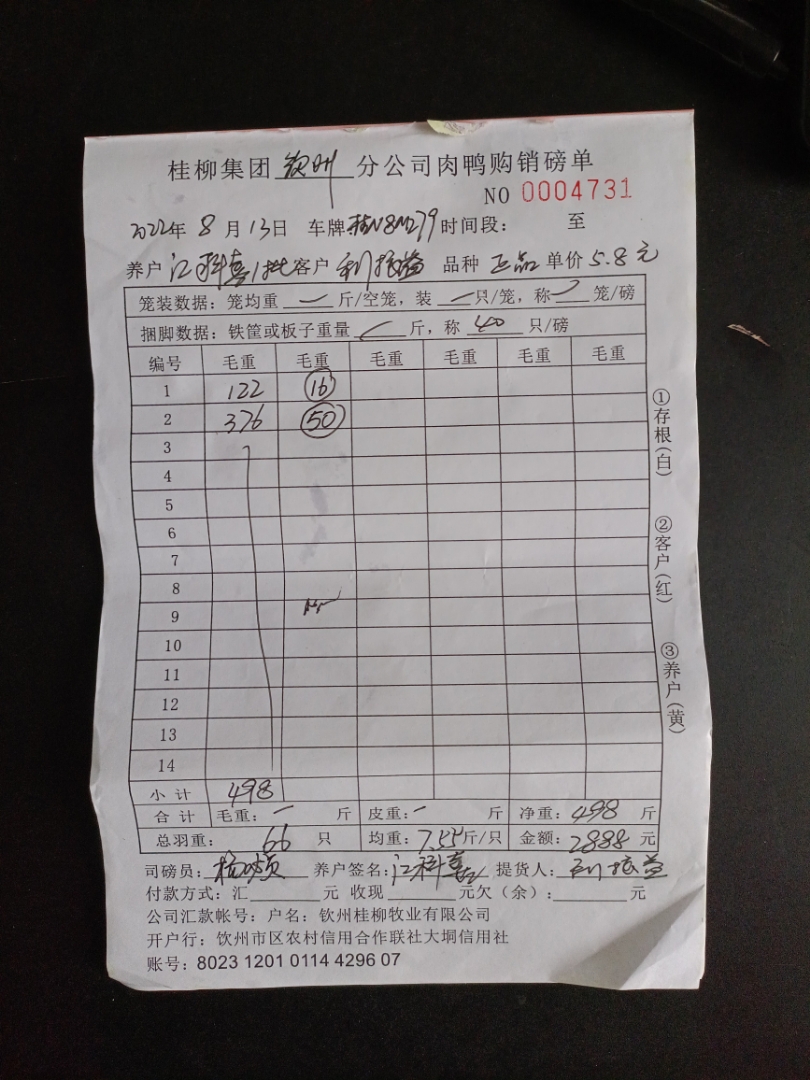 桂柳集团 钦州 分公司肉鸭购销磅单
NO 0004731
2022年 8 月 13日 车牌 桂N8M279 时间段： 至
养户 江科喜1批 客户 利振益 品种 正品 单价 5.8 元
笼装数据：笼均重 一 斤/空笼，装 一 只/笼，称 笼/磅
捆脚数据：铁筐或板子重量 斤，称 40 只/磅
编号 毛重 毛重 毛重 毛重 毛重 毛重
1 122 16
2 376 50
3
4
5
6
7
8
9
10
11
12
13
14
小计 498
合计 毛重：一 斤 皮重：一 斤 净重：498 斤
总羽重： 66 只 均重：7.55斤/只 金额：2888 元
司磅员： 养户签名：江科喜 提货人：利振益
付款方式：汇 元 收现 元欠（余）： 元
公司汇款帐号：户名：钦州桂柳牧业有限公司
开户行：钦州市区农村信用合作联社大垌信用社
账号：8023 1201 0114 4296 07
①存根（白）
②客户（红）
③养户（黄）